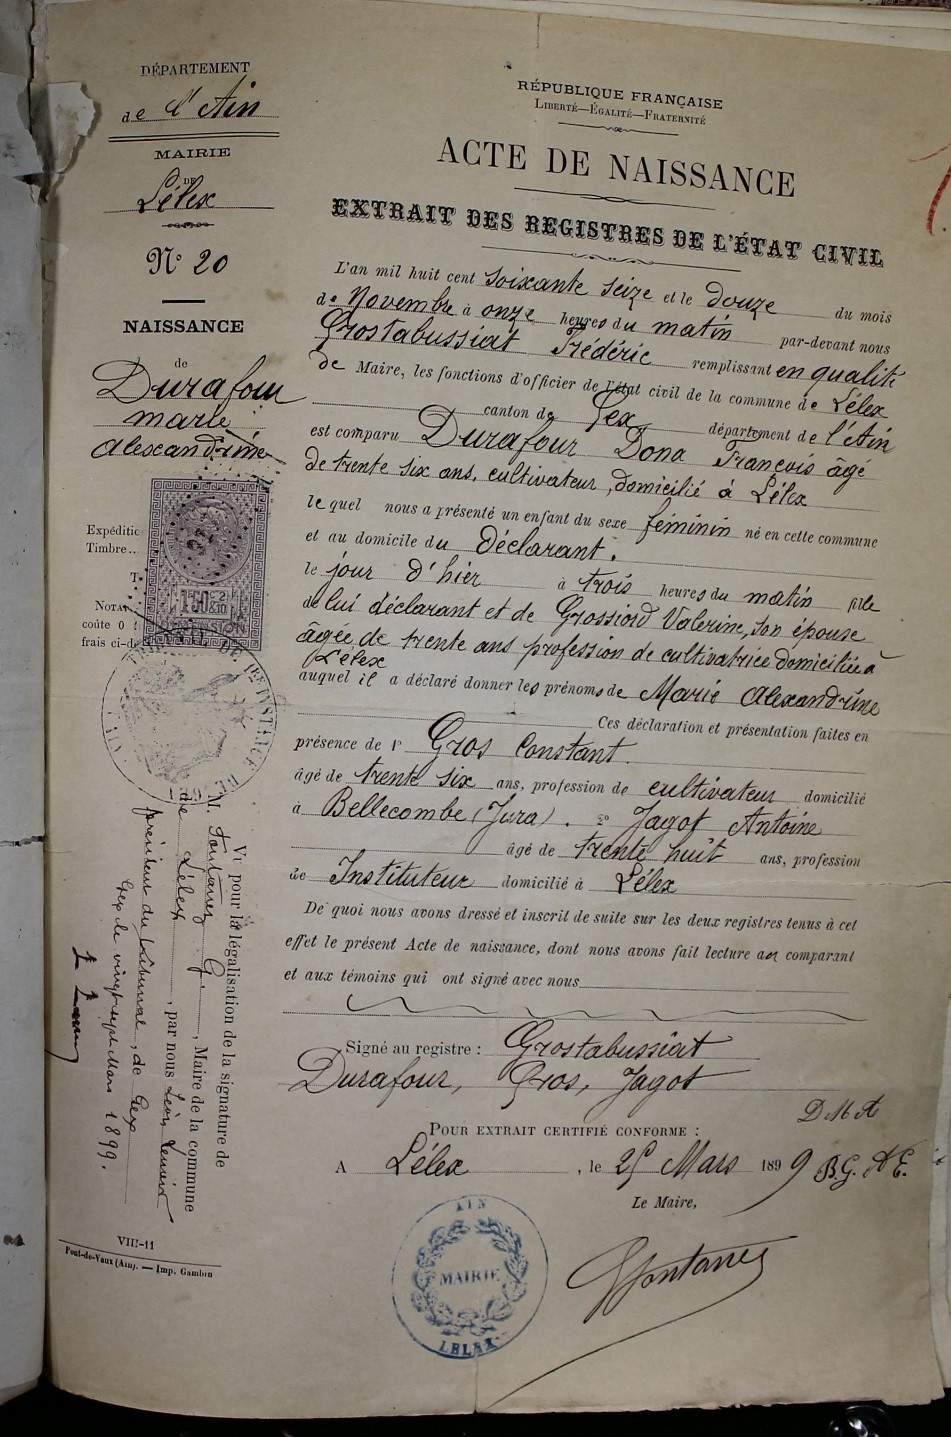 DÉPARTEMENT
de l'Ain
MAIRIE
DE
Lélex
N° 20
NAISSANCE
de
Durafour
marie
alexandrine
Expéditio
Timbre..
T
NOTA
coûte 0
frais ci-de
RÉPUBLIQUE FRANÇAISE
LIBERTÉ—ÉGALITÉ—FRATERNITÉ
ACTE DE NAISSANCE
EXTRAIT DES REGISTRES DE L'ÉTAT CIVIL
L'an mil huit cent soixante seize et le douze du mois
de Novembre à onze heures du matin par-devant nous
Grostabussiat Frédéric remplissant en qualité
de Maire, les fonctions d'officier de l'état civil de la commune de Lélex
canton de Gex département de l'Ain
est comparu Durafour Dona François âgé
de trente six ans, cultivateur, domicilié à Lélex
lequel nous a présenté un enfant du sexe féminin né en cette commune
et au domicile du déclarant.
le jour d'hier à trois heures du matin fille
de lui déclarant et de Grossiord Valerine, son épouse
âgée de trente ans profession de cultivatrice domiciliée à
Lélex
auquel il a déclaré donner les prénoms de Marie Alexandrine
Ces déclaration et présentation faites en
présence de 1° Gros Constant.
âgé de trente six ans, profession de cultivateur domicilié
à Bellecombe (Jura). 2° Jagot Antoine
âgé de trente huit ans, profession
de Instituteur domicilié à Lélex
De quoi nous avons dressé et inscrit de suite sur les deux registres tenus à cet
effet le présent Acte de naissance, dont nous avons fait lecture au comparant
et aux témoins qui ont signé avec nous
Signé au registre : Grostabussiat
Durafour, Gros, Jagot
D M A
POUR EXTRAIT CERTIFIÉ CONFORME :
A Lélex, le 25 Mars 1899 B.G. A E.
Le Maire,
GFontanez
AIN
MAIRIE
LELEX
VU pour la légalisation de la signature de
M. Fontanez G, Maire de la commune
de Lélex, par nous
président du tribunal, de Gex
Gex le vingt-sept Mars 1899.
VIII-11
Pont-de-Vaux (Ain). — Imp. Gambin